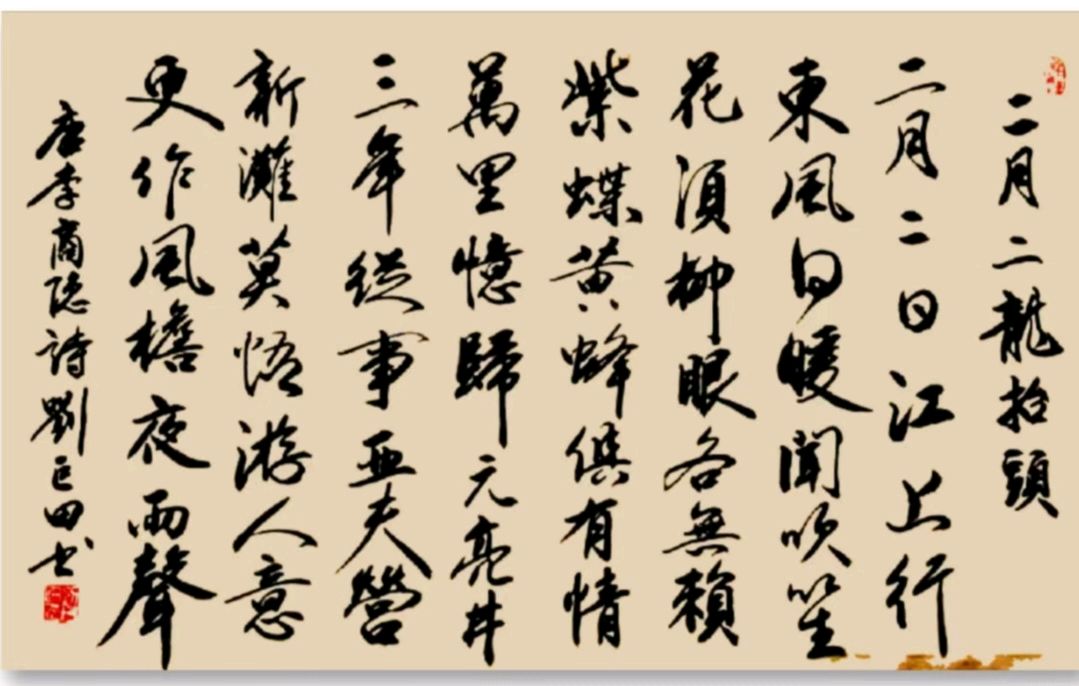 二月二龍抬頭
二月二日江上行
東風日暖聞吹笙
花須柳眼各無賴
紫蝶黄蜂俱有情
萬里憶歸元亮井
三年從事亞夫營
新灘莫悟游人意
更作風檐夜雨聲
唐李商隐詩劉巨田书